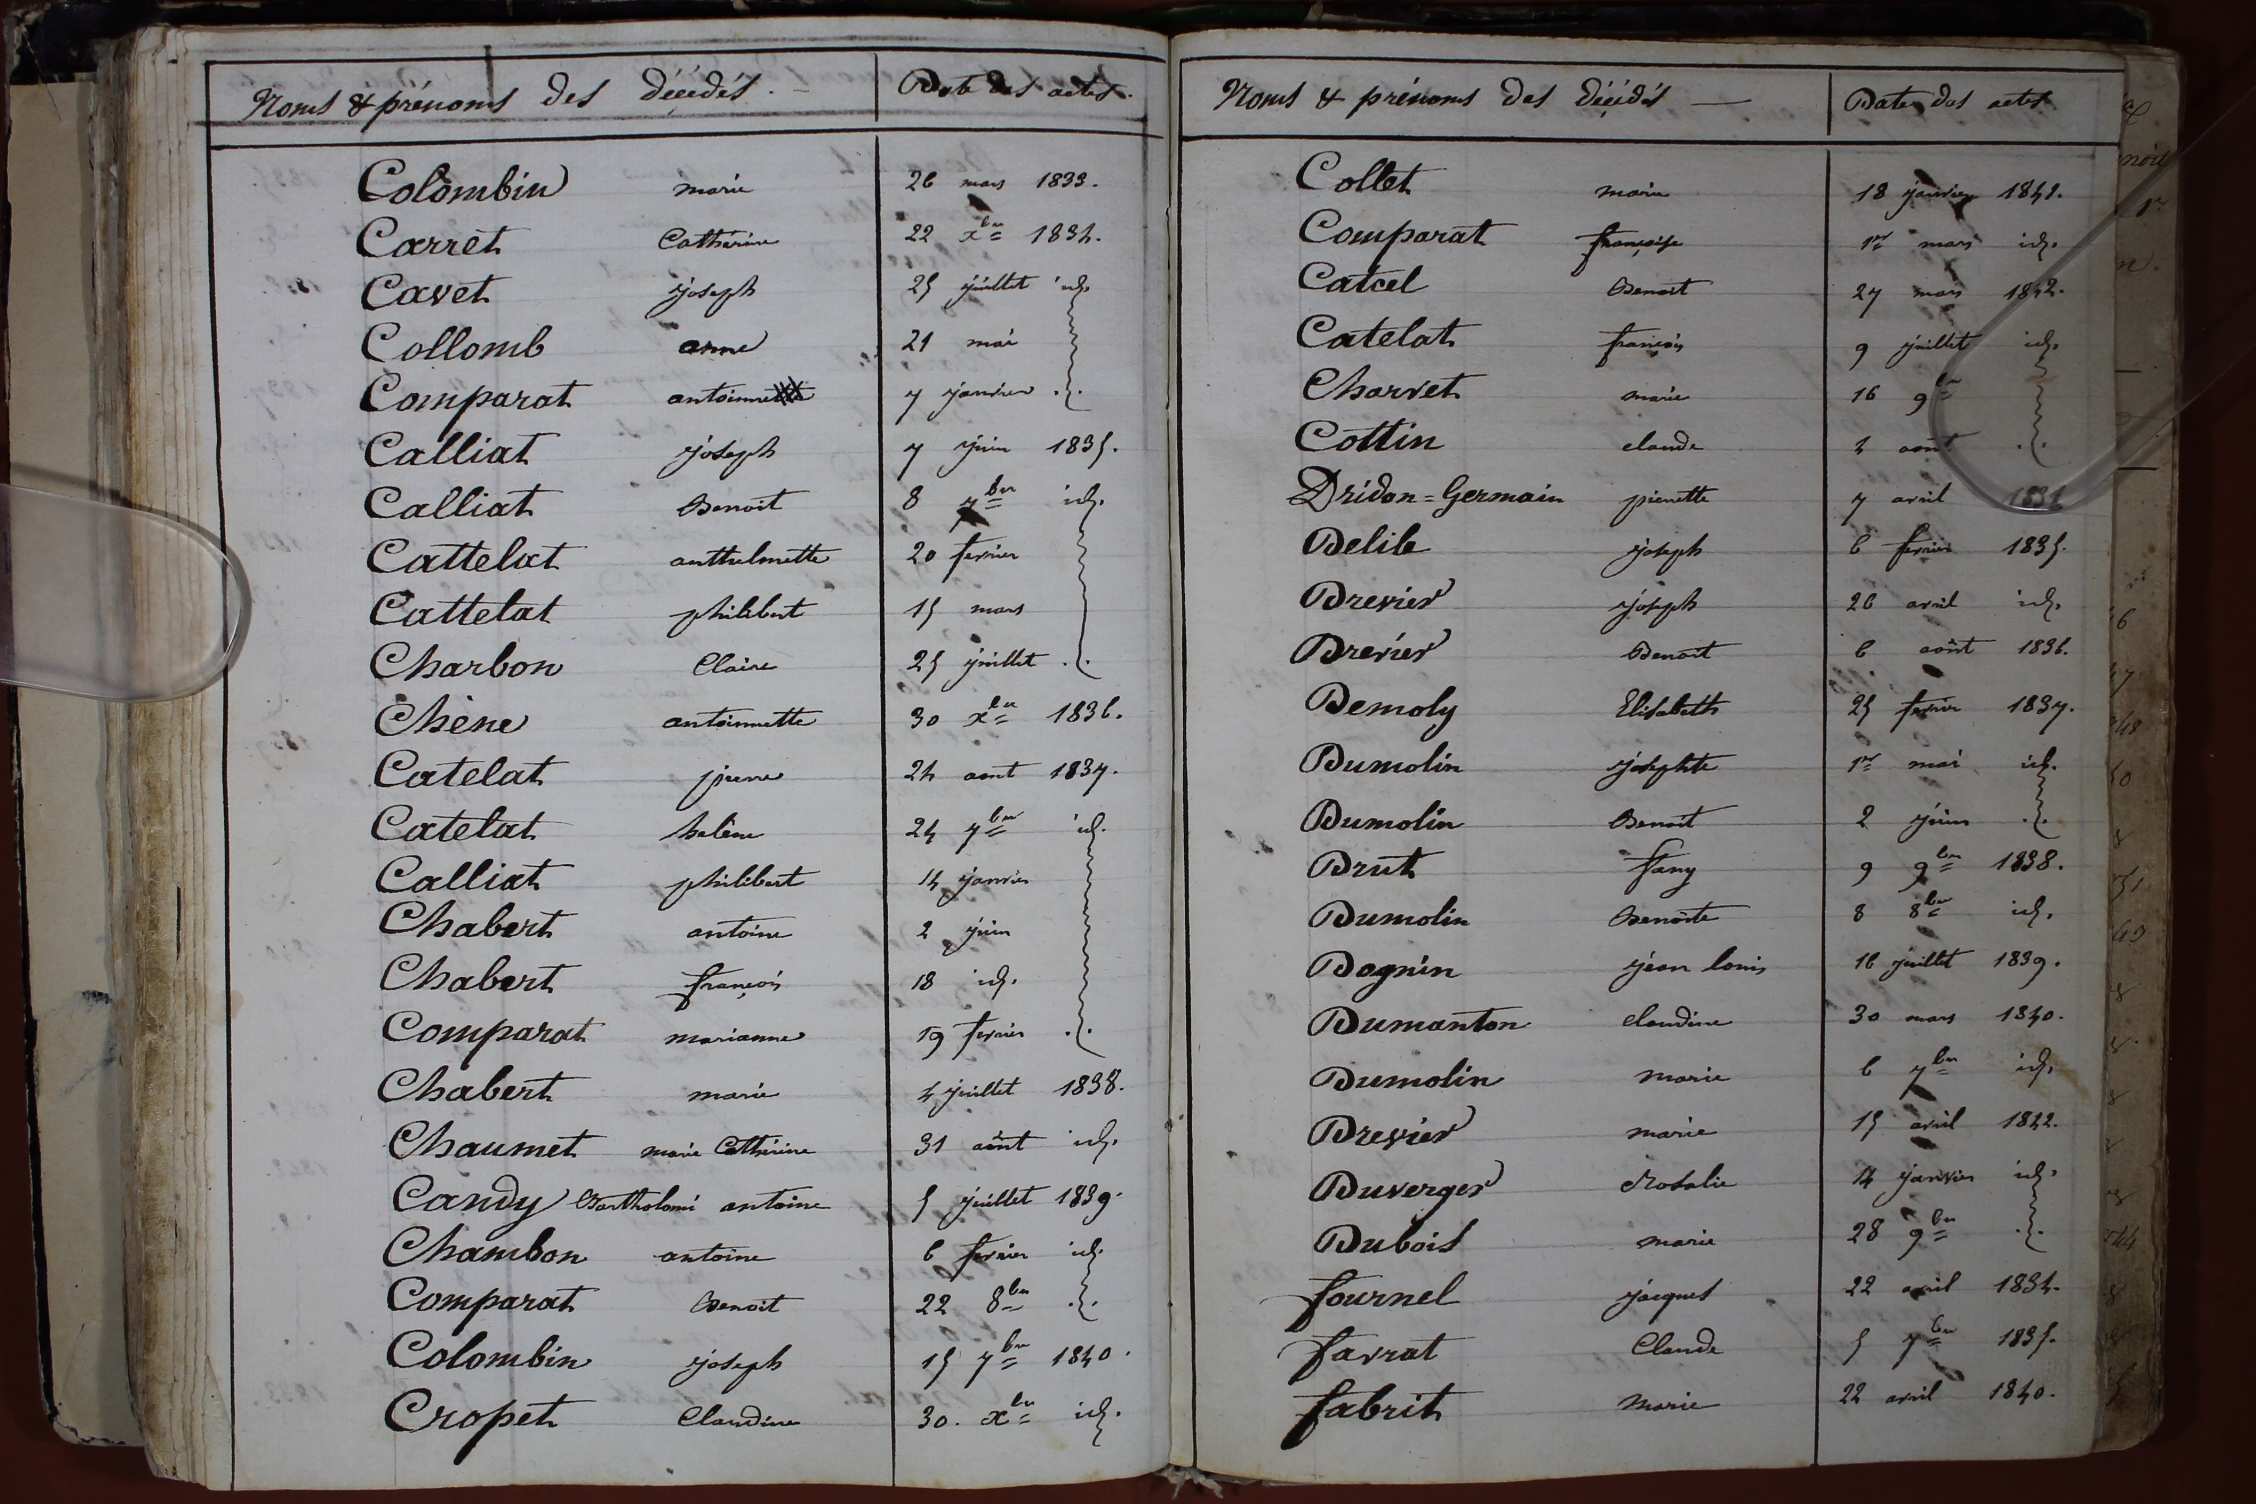 Noms & prénoms des décédés. — Date des actes.
Colombin marie 26 mars 1833.
Carret Cathérine 22 xbre 1834.
Cavet joseph 25 juillet id.
Collomb anne 21 mai
Comparat antoine 7 janvier
Calliat joseph 7 juin 1835.
Calliat Benoit 8 7bre id.
Cattelat anthelmette 20 fevrier
Cattelat philibert 15 mars
Charbon Claire 25 juillet
Chêne antoinnette 30 xbre 1836.
Catelat pierre 24 aout 1837.
Catelat helène 24 7bre id.
Calliat philibert 14 janvier
Chabert antoine 2 juin
Chabert françois 18 id.
Comparat marianne 19 fevrier
Chabert marie 4 juillet 1838.
Chaumet marie Cathérine 31 aôut id.
Candy Bartholomé antoine 5 juillet 1839.
Chambon antoine 6 fevrier id.
Comparat Benoit 22 8bre
Colombin joseph 15 7bre 1840.
Cropet Claudine 30. xbre id.
Noms & prénoms des décédés — Date des actes
Collet marie 18 janvier 1841.
Comparat françoise 1er mars id.
Catcel Benoit 27 mars 1842.
Catelat françois 9 juillet id.
Charvet marie 16 9bre
Cottin claude 4 aout
Dridon=Germain pierrette 7 avril
Delile joseph 6 fevrier 1835.
Drevier joseph 26 avril id.
Drevier Benoit 6 aôut 1836.
Demoly Elisabeth 25 fevrier 1837.
Dumolin josephte 1er mai id.
Dumolin Benoit 2 juin
Drut fany 9 9bre 1838.
Dumolin Benoîte 8 8bre id.
Dagnin jean louis 16 juillet 1839.
Dumanton claudine 30 mars 1840.
Dumolin marie 6 7bre id.
Drevier marie 15 avril 1842.
Duverger Rosalie 14 janvier id.
Dubois marie 28 9bre
fournel jacques 22 avril 1834.
favrat Claude 5 7bre 1835.
fabrit marie 22 avril 1840.